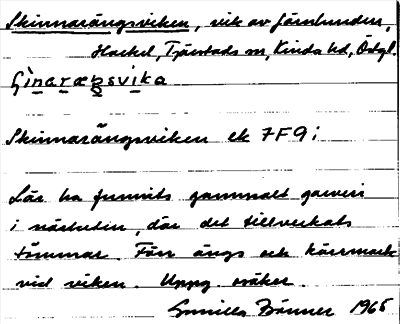 Skinnarängsviken, vik av Järnlunden,
Hackel, Tjärstads sn, Kinda hd, Östgl.
Skinnarängsviken ek 7F9i
Lär ha funnits gammalt garveri
i närheten, där det tillverkats
tömmar. Förr ängs och kärrmark
vid viken. Uppg. osäker.
Gunilla Fänner 1965